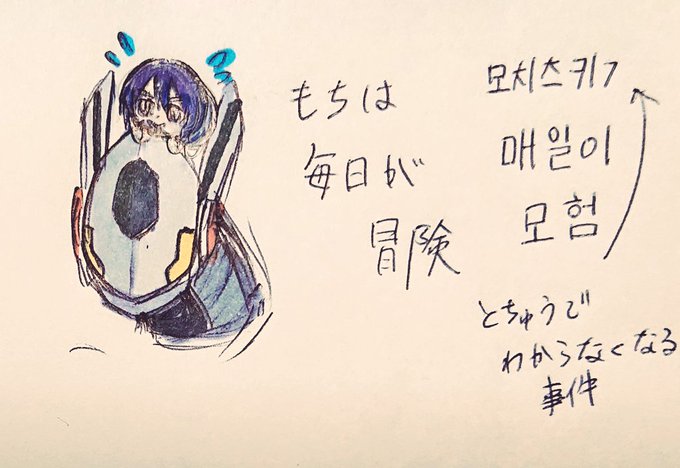 もちは
毎日が
冒険
모치츠키가
매일이
모험
とちゅうで
わからなくなる
事件